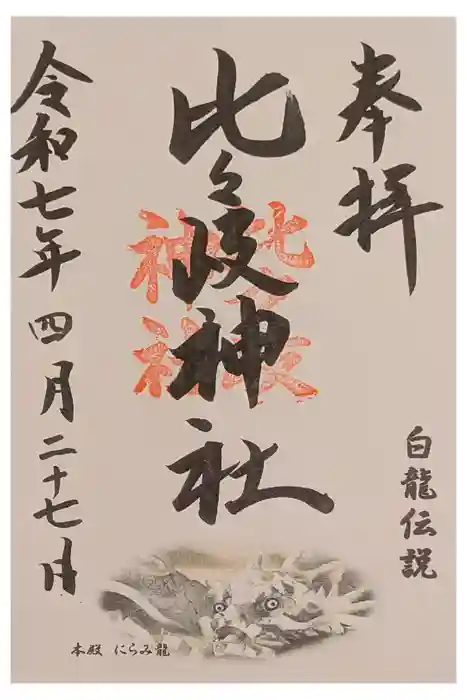 奉拝
白龍伝説
比々岐神社
比々岐神社
令和七年四月二十七日
本殿 にらみ龍